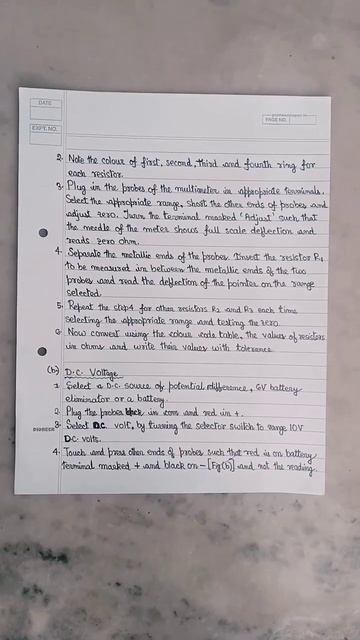 DATE
EXPT. NO.
PAGE NO.
2. Note the colour of first, second, third and fourth ring for
each resistor.
3. Plug in the probes of the multimeter in appropriate terminals.
Select the appropriate range, short the other ends of probes and
adjust zero. Turn the terminal marked 'Adjust' such that
the needle of the meter shows full scale deflection and
reads zero ohm.
4. Separate the metallic ends of the probes. Insert the resistor R1
to be measured in between the metallic ends of the two
probes and read the deflection of the pointer on the range
selected.
5. Repeat the step4 for other resistors R2 and R3 each time
selecting the appropriate range and testing the zero.
6. Now convert using the colour code table, the values of resistors
in ohms and write their values with tolerance.
(b) D.C. Voltage
1. Select a D.C. source of potential difference, 6V battery
eliminator or a battery.
2. Plug the probes black in com and red in +.
3. Select D.C. volt, by turning the selector switch to range 10V
D.C. volts.
4. Touch and press other ends of probes such that red is on battery
terminal marked + and black on - [Fig(b)] and not the reading.